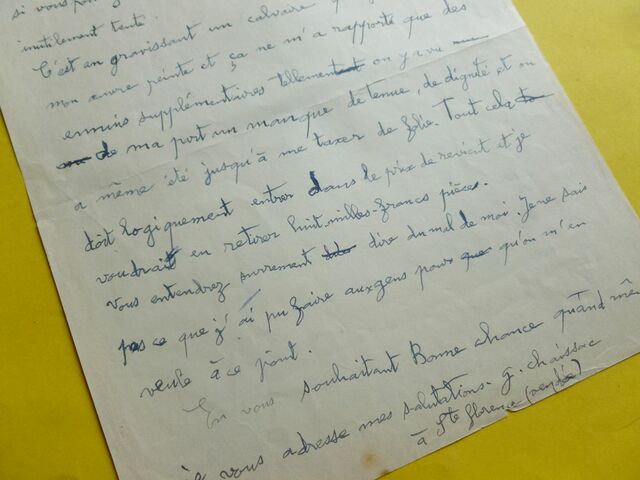 si vous
inutilement tenté.
C'est en gravissant un calvaire
mon œuvre peinte et ça ne m'a rapporté que des
ennuis supplémentaires tellement on y a vu
de ma part un manque de tenue, de dignité et on
a même été jusqu'à me taxer de folie. Tout cela
doit logiquement entrer dans le prix de revient et je
voudrait en retirer huit milles francs pièces.
Vous entendrez surement dire du mal de moi. Je ne sais
pas ce que j'ai pu faire aux gens pour qu'on m'en
veule à ce point.
En vous souhaitant Bonne chance quand mê
je vous adresse mes salutations - g. chaissac
à Ste florence (vendée)